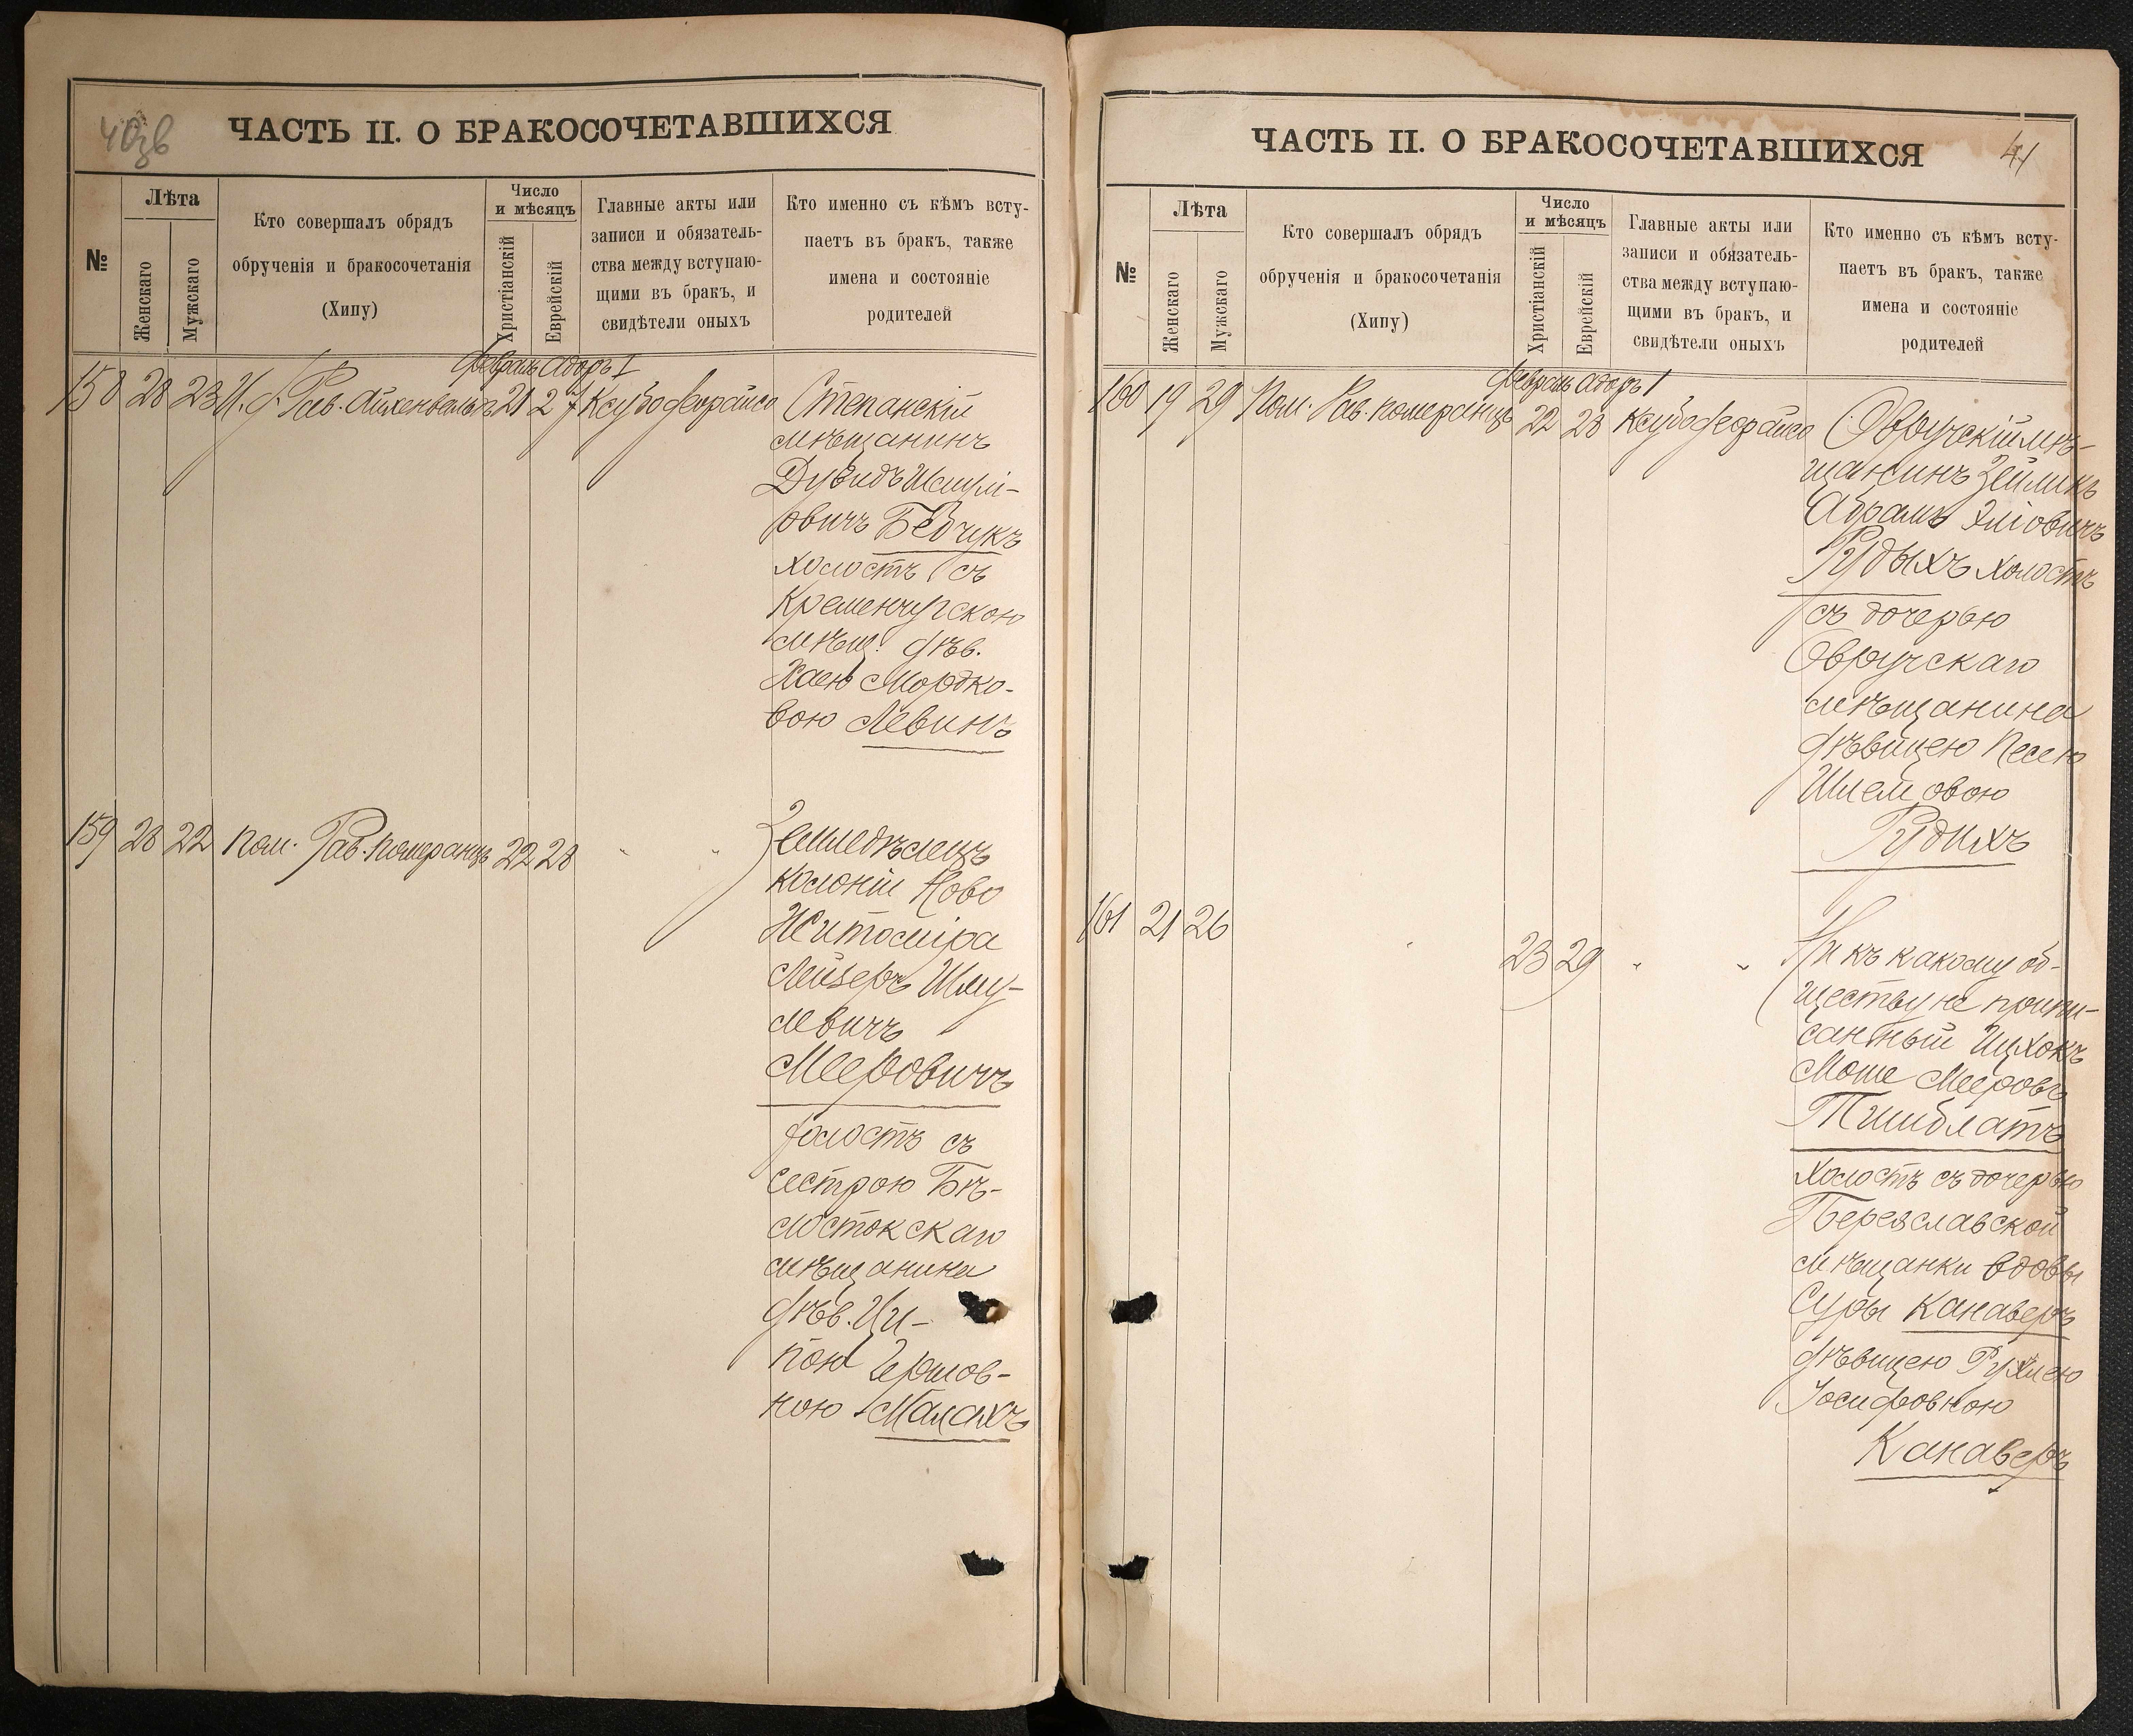 40зв
ЧАСТЬ II. О БРАКОСОЧЕТАВШИХСЯ
№
Лѣта
Женскаго
Мужскаго
Кто совершалъ обрядъ
обрученія и бракосочетанія
(Хипу)
Число
и мѣсяцъ
Христіанскій
Еврейскій
Главные акты или
записи и обязатель-
ства между вступаю-
щими въ бракъ, и
свидѣтели оныхъ
Кто именно съ кѣмъ всту-
паетъ въ бракъ, также
имена и состояніе
родителей
Февраль Адоръ I
158 28 23 И. д. Рав. Айхенвальдъ 21 27 Ксубо феорайсо
Степанскій
мѣщанинъ
Дувидъ
овичъ Бебчукъ
холостъ съ
Кременчугскою
мѣщ. дѣв.
Хаею Мордко-
вою Левинъ
159 28 22 Пом. Рав. Померанцъ 22 28 " "
Земледѣлецъ
колоніи Ново
Житоміра
Лейзеръ Шму-
левичъ
Мееровичъ
холостъ съ
сестрою Бѣ-
лостокскаго
мѣщанина
дѣв. Ци-
пою Гершов-
ною Малахъ
ЧАСТЬ II. О БРАКОСОЧЕТАВШИХСЯ
41
№
Лѣта
Женскаго
Мужскаго
Кто совершалъ обрядъ
обрученія и бракосочетанія
(Хипу)
Число
и мѣсяцъ
Христіанскій
Еврейскій
Главные акты или
записи и обязатель-
ства между вступаю-
щими въ бракъ, и
свидѣтели оныхъ
Кто именно съ кѣмъ всту-
паетъ въ бракъ, также
имена и состояніе
родителей
Февраль Адоръ I
160 19 29 Пом. Рав. Померанцъ 22 28 Ксубо феорайсо
Овручскій мѣ-
щанинъ Зейликъ
Абрамъ Эліовичъ
Рудыхъ холостъ
съ дочерью
Овручскаго
мѣщанина
дѣвицею Песею
Шлемовою
Рудихъ
161 21 26 " 23 29 " "
Ни къ какому об-
ществу не припи-
санный Ицхокъ
Моше Мееровъ
Тишблатъ
холостъ съ дочерью
Переяславской
мѣщанки вдовы
Суры Канаверъ
дѣвицею Рухлею
Іосифовною
Канаверъ